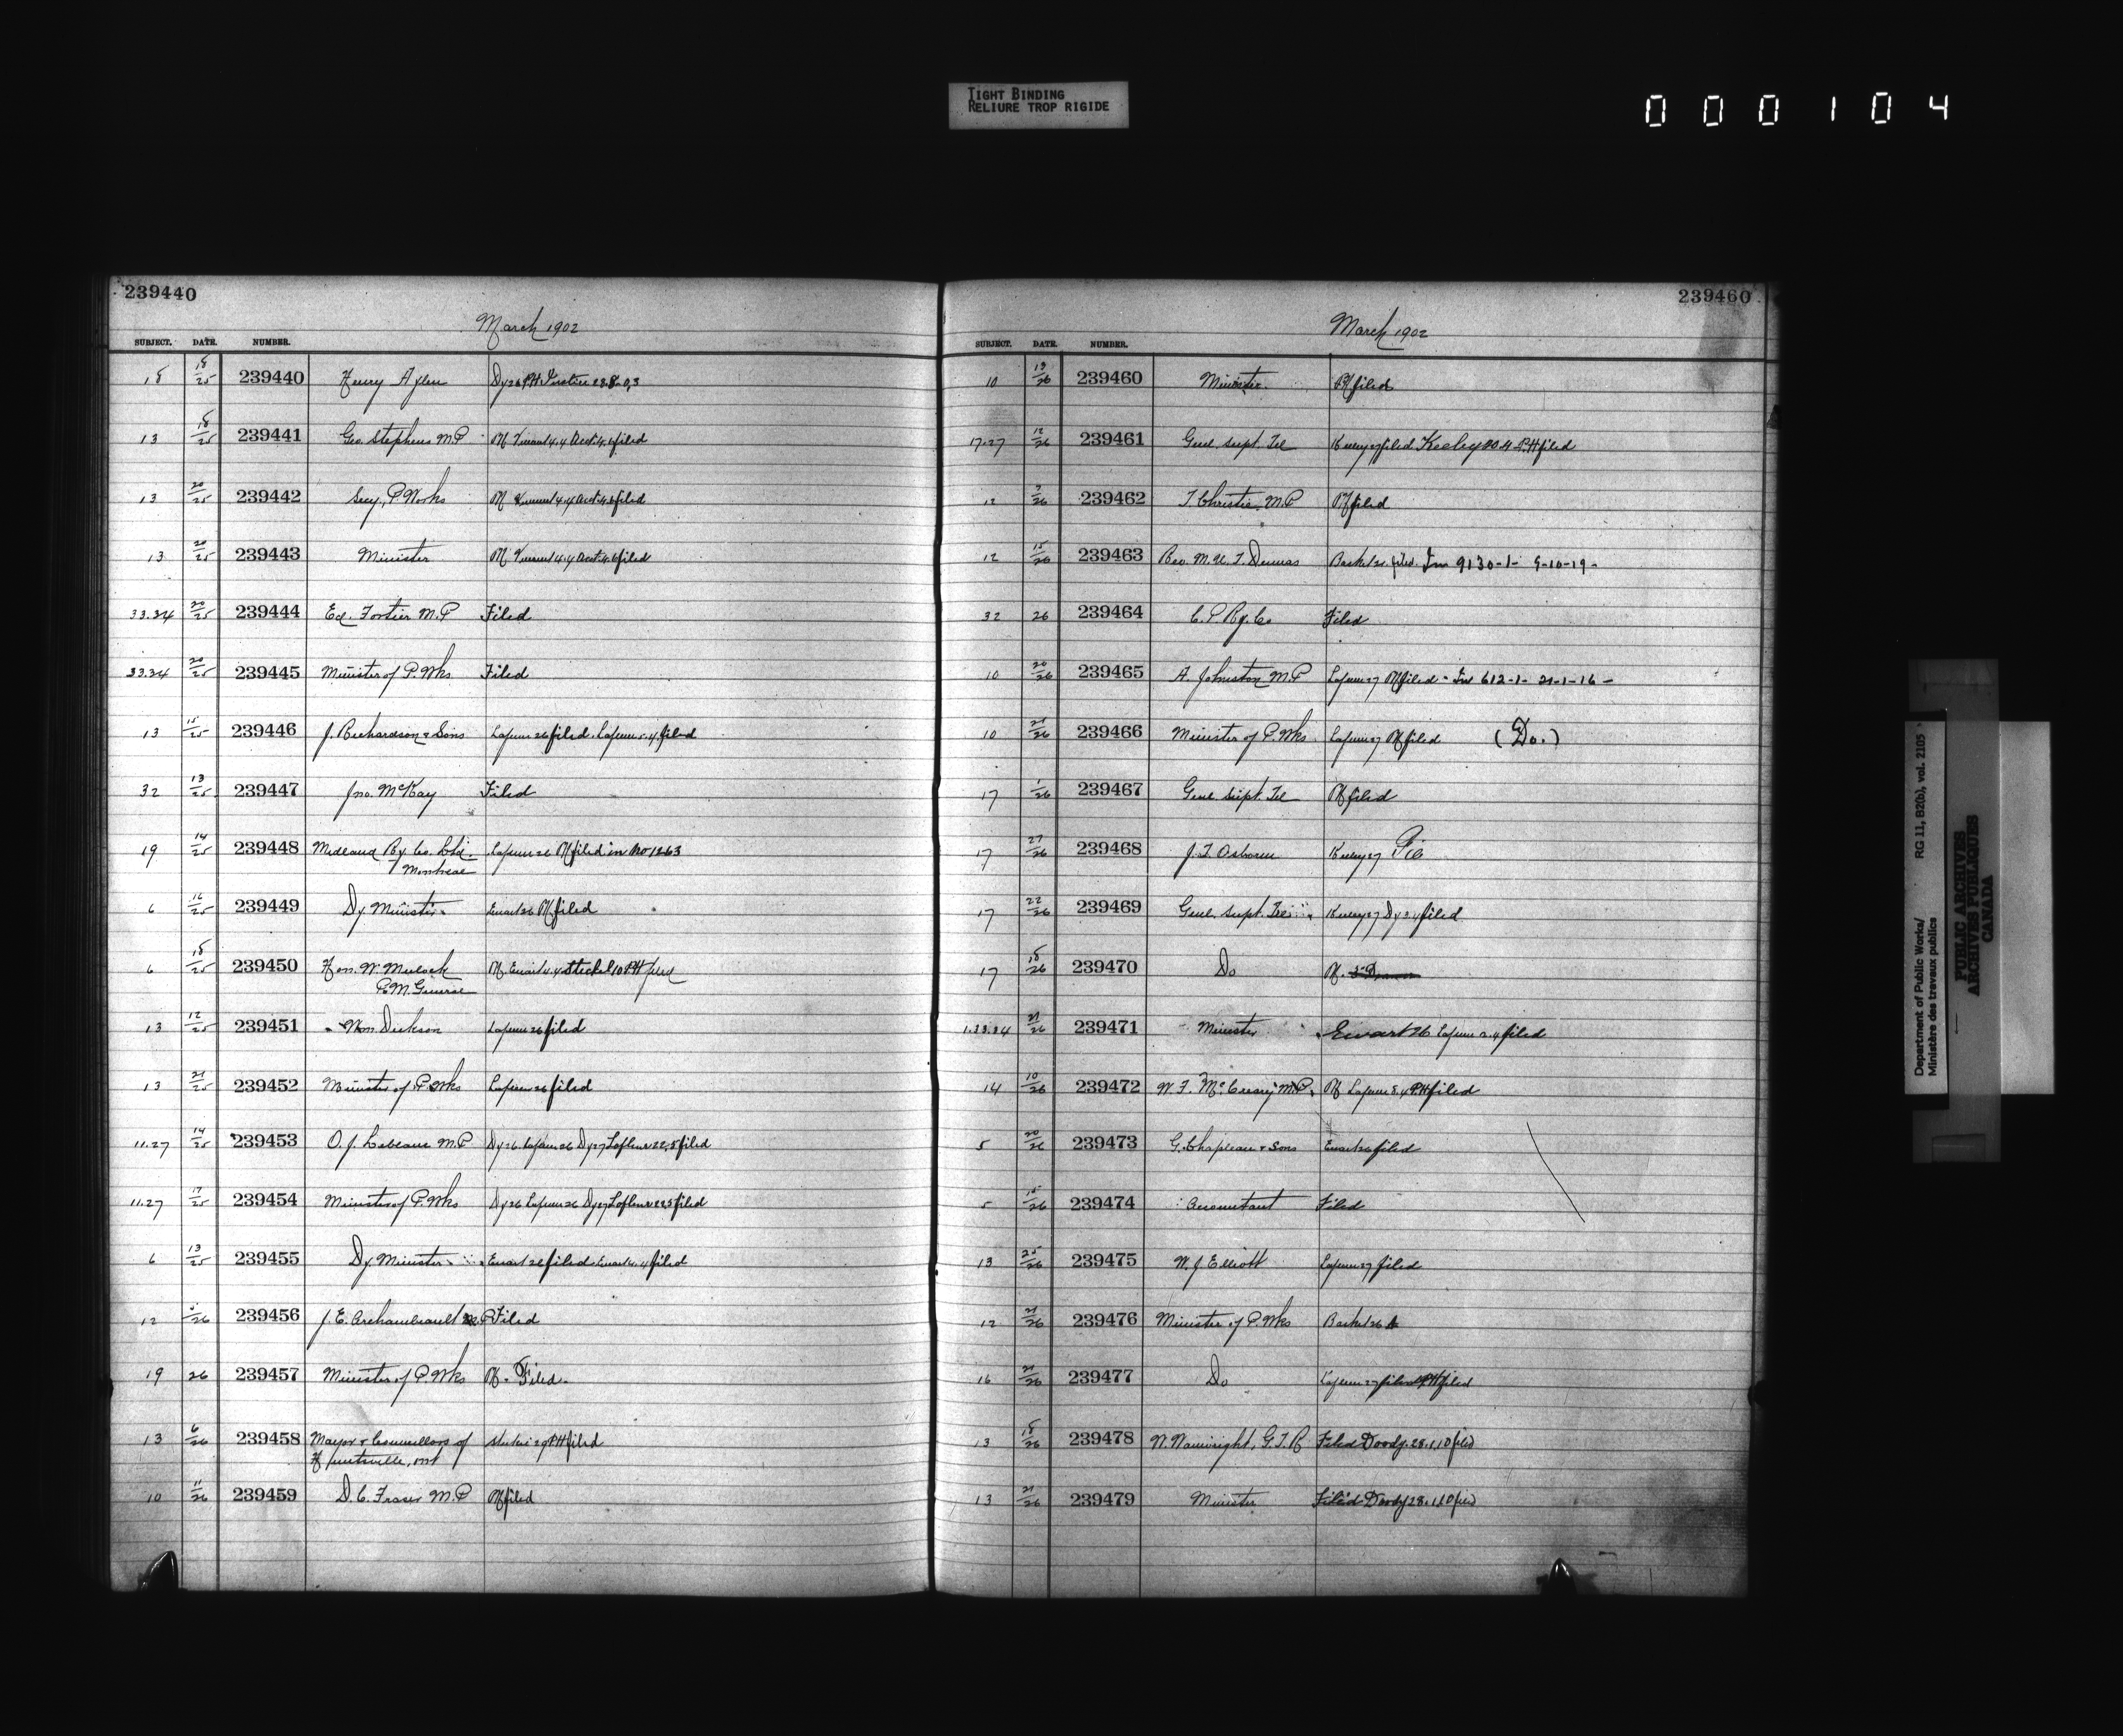 TIGHT BINDING
RELIURE TROP RIGIDE
000104
239440
March 1902
SUBJECT. DATE. NUMBER.
18 18/25 239440 Henry Aylen Dy 26 PH Justice 22.8.03
13 18/25 239441 Geo. Stephens M.P filed
13 20/25 239442 Secy, P. Works filed
13 20/25 239443 Minister filed
33.34 20/25 239444 Ed. Fortier M.P Filed
33.34 20/25 239445 Minister of P. Wks Filed
13 15/25 239446 J. Richardson & Sons Lafleur 26 filed. Lafleur 5.4 filed
32 13/25 239447 Jno. McKay Filed
19 14/25 239448 Midland Ry Co. Ltd. Lafleur 26 filed in No 1263
Montreal
6 16/25 239449 Dy Minister Ewart 26 filed
6 18/25 239450 Hon. W. Mulock Ewart 4.4 Steckel 10 PH filed
P.M. General
13 12/25 239451 Wm Dickson Lafleur 26 filed
13 21/25 239452 Minister of P. Wks Lafleur 26 filed
11.27 14/25 239453 O.J. Lebeau M.P Dy 26 Lafleur 26 Dy 27 Lafleur 22.5 filed
11.27 17/25 239454 Minister of P. Wks Dy 26 Lafleur 26 Dy 27 Lafleur 22.5 filed
6 13/25 239455 Dy Minister Ewart 26 filed Ewart 4 filed
12 5/26 239456 J.E. Archambault M.P Filed
19 26 239457 Minister of P. Wks Filed
13 6/26 239458 Mayor & Councillors of 29 PH filed
Huntsville, Ont
10 11/26 239459 D.C. Fraser M.P filed
239460
March 1902
SUBJECT. DATE. NUMBER.
10 19/26 239460 Minister filed
17.27 12/26 239461 Genl. Supt. Tel Keeley 27 filed Keeley 30 4 PH filed
12 7/26 239462 T. Christie M.P filed
12 15/26 239463 Rev. M. Filed. In 9130-1- 9-10-19-
32 26 239464 C. P Ry. Co Filed
10 20/26 239465 A. Johnston M.P Lafleur 27 filed - In 612-1- 21-1-16-
10 21/26 239466 Minister of P. Wks Lafleur 27 filed (Do.)
17 1/26 239467 Genl Supt. Tel filed
17 27/26 239468 J.T. Osborne Keeley 27
17 22/26 239469 Genl. Supt. Tel Keeley 27 Dy 2.4 filed
17 18/26 239470 Do
1.33.34 21/26 239471 Minister Ewart 26 Lafleur 2.4 filed
14 10/26 239472 W.F. McCreary M.P. Lafleur 8.4 PH filed
5 20/26 239473 G. Chapleau & Sons Ewart 26 filed
5 15/26 239474 Accountant Filed
13 25/26 239475 W.J Elliott Lafleur 27 filed
12 21/26 239476 Minister of P. Wks
16 21/26 239477 Do Lafleur 27 filed PH filed
13 18/26 239478 W. Wainwright, G.T.R Filed Doody 28.1.10 filed
13 21/26 239479 Minister Filed Doody 28.1.10 filed
Department of Public Works/ RG 11, B2(b), vol. 2105
Ministère des travaux publics
PUBLIC ARCHIVES
ARCHIVES PUBLIQUES
CANADA